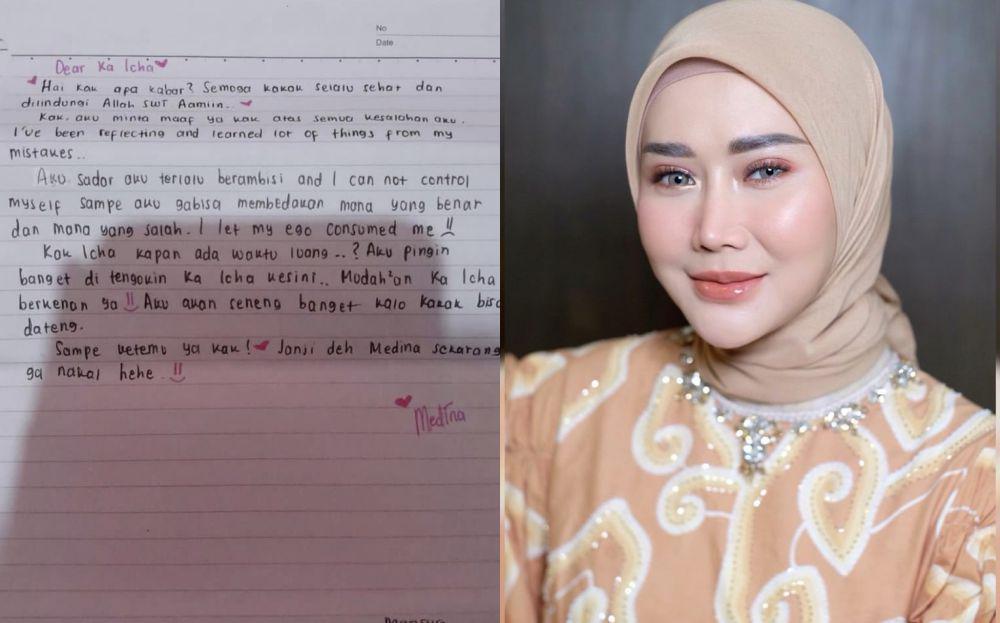 No
Date
Dear Ka Icha
Hai kak apa kabar? Semoga kakak selalu sehat dan
dilindungi Allah SWT Aamiin..
Kak. aku minta maaf ya kak atas semua kesalahan aku.
I've been reflecting and learned lot of things from my
mistakes..
Aku sador aku terlalu berambisi and I can not control
myself sampe aku gabisa membedakan mana yang benar
dan mana yang salah. I let my ego consumed me
Kak Icha kapan ada waktu luang..? Aku pingin
banget di tengokin Ka Icha kesini.. Mudah²an Ka Icha
berkenan ya Aku akan seneng banget kalo kakak bisa
dateng.
Sampe ketemu ya kak! Janji deh Medina sekarang
ga nakal hehe
Medina